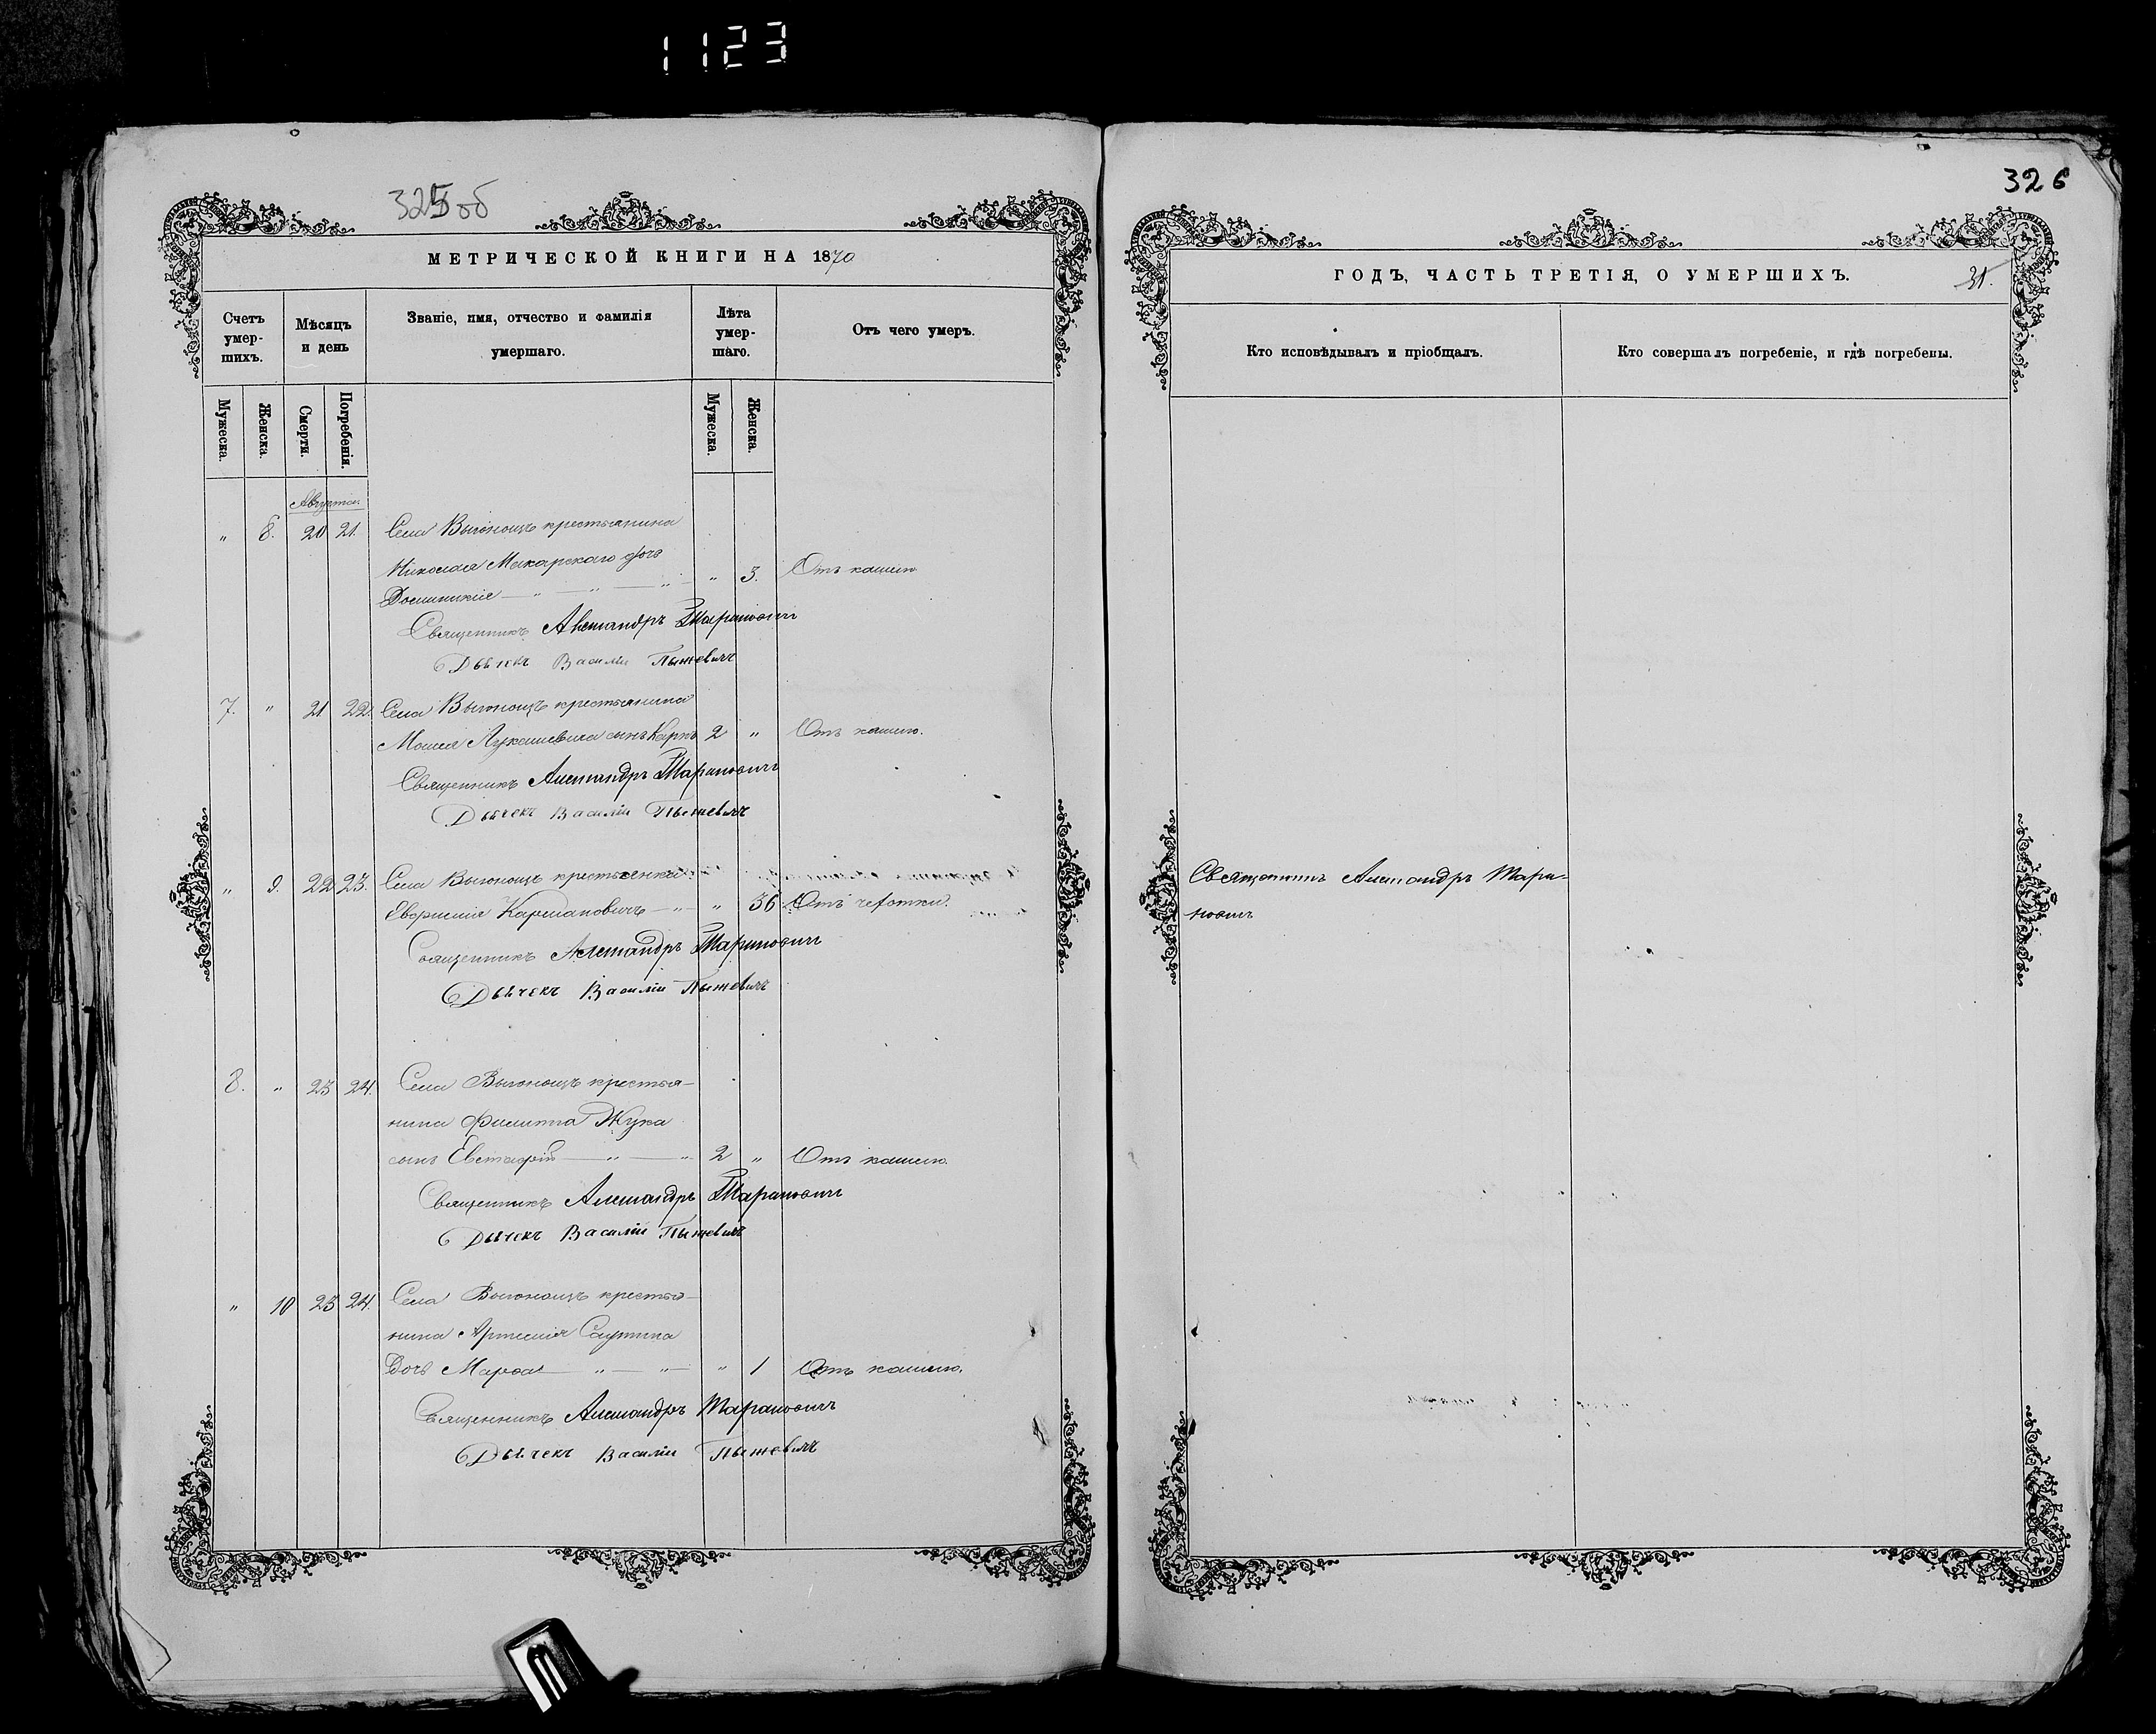 1123
325 об
МЕТРИЧЕСКОЙ КНИГИ НА 1870
Счетъ умер-шихъ.
Мѣсяцъ и день
Званіе, имя, отчество и фамилія умершаго.
Лѣта умер-шаго.
Отъ чего умеръ.
Мужеска.
Женска.
Смерти.
Погребенія.
Мужеска.
Женска.
Августа.
" 8. 20 21. Села Выгонощъ крестьянина
Николая Макарскаго дочь
Доминикія — " — " — " — " 3. Отъ кашлю
Священникъ Александръ Тарановичъ
Дьячекъ Василій Пыжевичъ
7. " 21 22. Села Выгонощъ крестьянина
Моисея Лукашевича сынъ Карпъ 2 " Отъ кашлю.
Священникъ Александръ Тарановичъ
Дьячекъ Василій Пыжевичъ
" 9. 22 23. Села Выгонощъ крестьянка
Евфимія — " — " 36 Отъ чехотки.
Священникъ Александръ Тарановичъ
Дьячекъ Василій Пыжевичъ
8. " 23 24. Села Выгонощъ крестья-
нина Филиппа Жука
сынъ Евстафій — " — " 2 " Отъ кашлю.
Священникъ Александръ Тарановичъ
Дьячекъ Василій Пыжевичъ
" 10 23 24. Села Выгонощъ крестья-
нина Артемія
дочь Марфа — " — " — " 1 Отъ кашлю.
Священникъ Александръ Тарановичъ
Дьячекъ Василій Пыжевичъ
326
ГОДЪ, ЧАСТЬ ТРЕТІЯ, О УМЕРШИХЪ.
31.
Кто исповѣдывалъ и пріобщалъ.
Кто совершалъ погребеніе, и гдѣ погребены.
Священникъ Александръ Тара-
новичъ